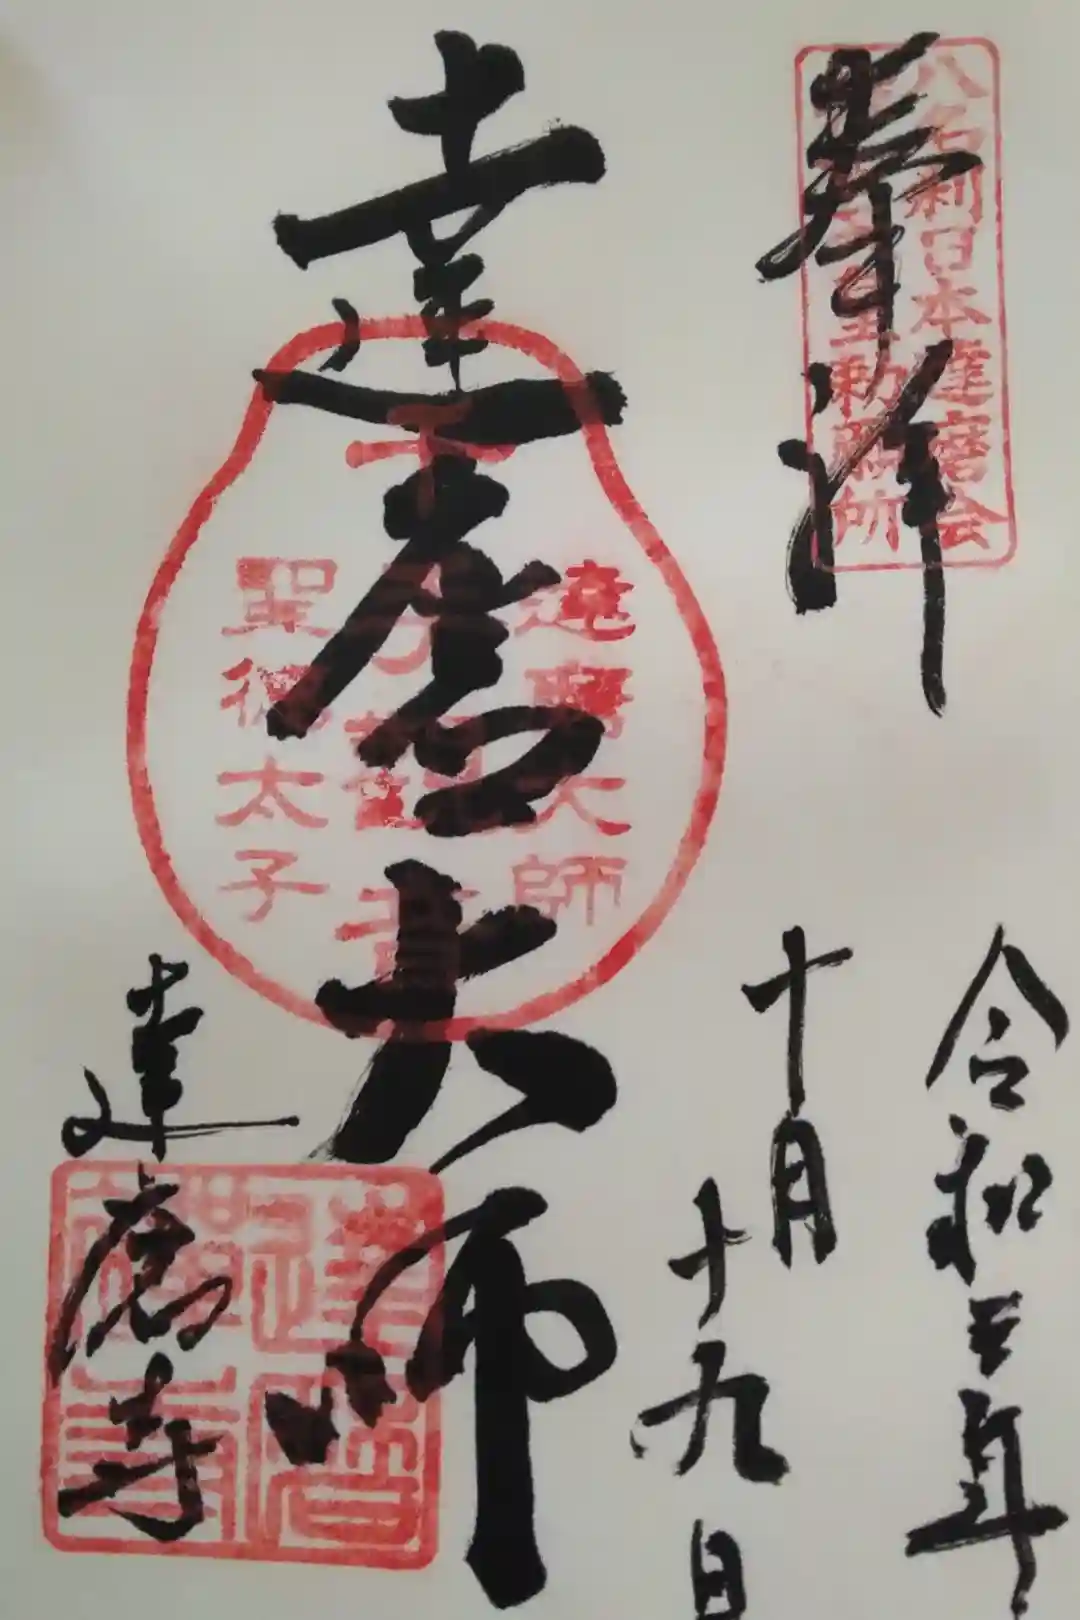 奉拝
八名刹日本達磨会
皇勅願所
令和三年
十月
十九日
達磨大師
達磨大師
千手観音
聖徳太子
達磨寺
達磨
禅寺